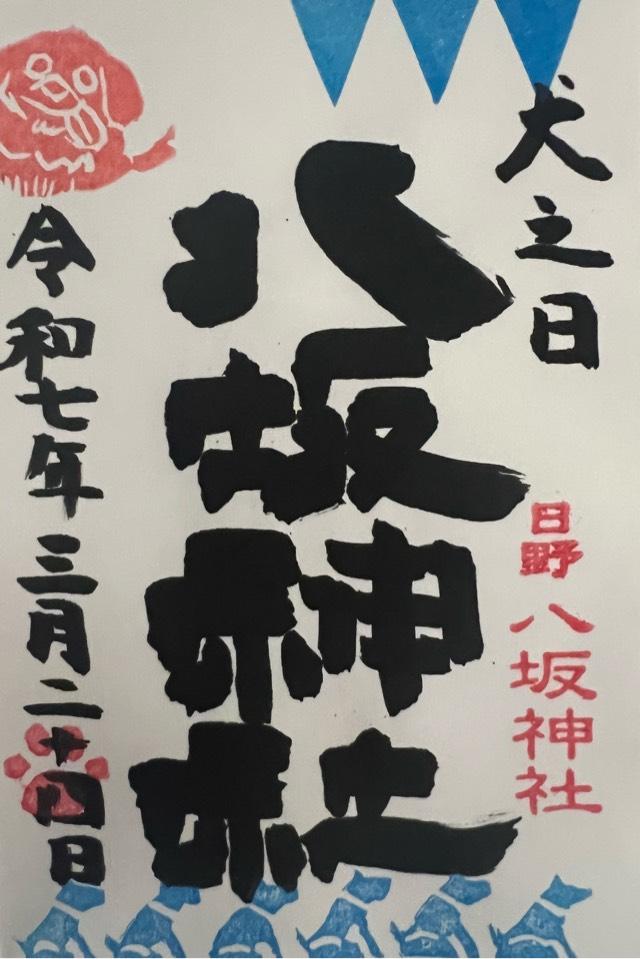 犬之日
日野
八坂神社
八坂神社
令和七年三月二十四日